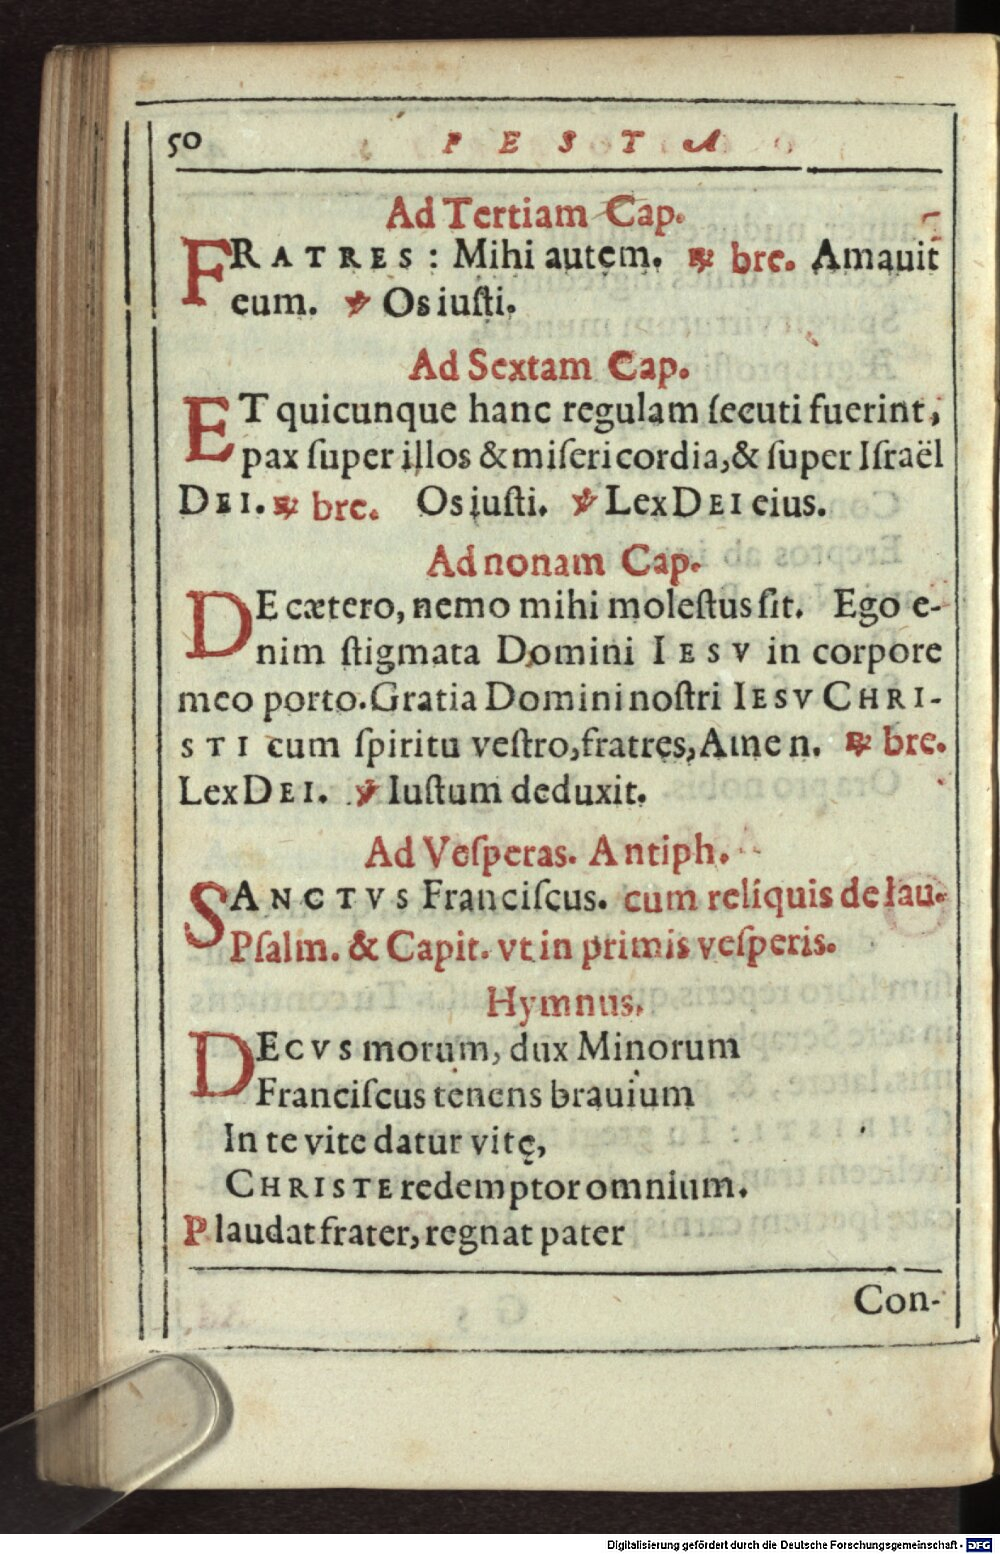 50 FESTA
Ad Tertiam Cap.
FRATRES: Mihi autem. ℟ bre. Amauit
eum. ℣ Os iuſti.
Ad Sextam Cap.
ET quicunque hanc regulam ſecuti fuerint,
pax ſuper illos & miſericordia, & ſuper Iſraël
DEI. ℟ bre. Os iuſti. ℣ Lex DEI eius.
Ad nonam Cap.
DE cætero, nemo mihi moleſtus ſit. Ego e-
nim ſtigmata Domini IESV in corpore
meo porto. Gratia Domini noſtri IESV CHRI-
STI cum ſpiritu veſtro, fratres, Amen. ℟ bre.
Lex DEI. ℣ Iuſtum deduxit.
Ad Veſperas. Antiph.
SANCTVS Franciſcus. cum reliquis de lau.
Pſalm. & Capit. vt in primis veſperis.
Hymnus.
DECVS morum, dux Minorum
Franciſcus tenens brauium
In te vite datur vitę,
CHRISTE redemptor omnium.
Plaudat frater, regnat pater
Con-
Digitalisierung gefördert durch die Deutsche Forschungsgemeinschaft - DFG